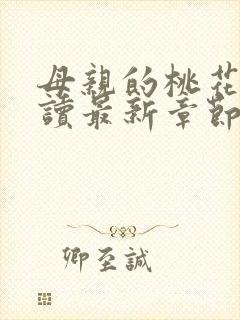 母親的桃花
讀最新章節
卿至誠